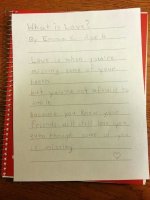 What is Love?
By Emma K. age 6
Love is when you're
missing some of your
teeth
but you're not afraid to
smile
because you know your
friends will still love you
even though some of you
is missing.